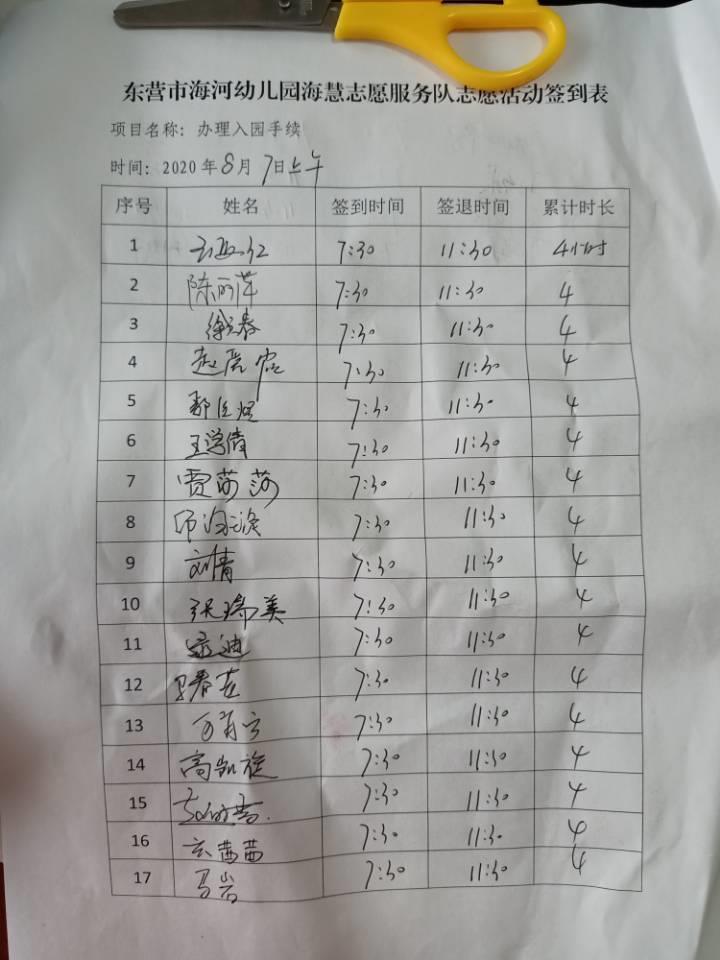 东营市海河幼儿园海慧志愿服务队志愿活动签到表
项目名称：办理入园手续
时间：2020年8月7日上午
序号 姓名 签到时间 签退时间 累计时长
1 7:30 11:30 4小时
2 陈丽萍 7:30 11:30 4
3 7:30 11:30 4
4 7:30 11:30 4
5 7:30 11:30 4
6 王学倩 7:30 11:30 4
7 贾莎莎 7:30 11:30 4
8 7:30 11:30 4
9 刘倩 7:30 11:30 4
10 张瑞美 7:30 11:30 4
11 7:30 11:30 4
12 7:30 11:30 4
13 7:30 11:30 4
14 高凯旋 7:30 11:30 4
15 7:30 11:30 4
16 云茜茜 7:30 11:30 4
17 马岩 7:30 11:30 4